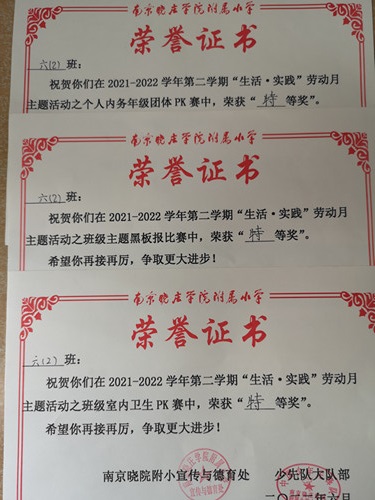 南京晓庄学院附属小学
荣誉证书
六(2)班:
祝贺你们在2021-2022学年第二学期“生活·实践”劳动月
主题活动之个人内务年级团体PK赛中,荣获“特 等奖”。
南京晓庄学院附属小学
荣誉证书
六(2)班:
祝贺你们在2021-2022学年第二学期“生活·实践”劳动月
主题活动之班级主题黑板报比赛中,荣获“特 等奖”。
希望你再接再厉,争取更大进步!
南京晓庄学院附属小学
荣誉证书
六(2)班:
祝贺你们在2021-2022学年第二学期“生活·实践”劳动月
主题活动之班级室内卫生PK赛中,荣获“特 等奖”。
希望你再接再厉,争取更大进步!
南京晓院附小宣传与德育处 少先队大队部